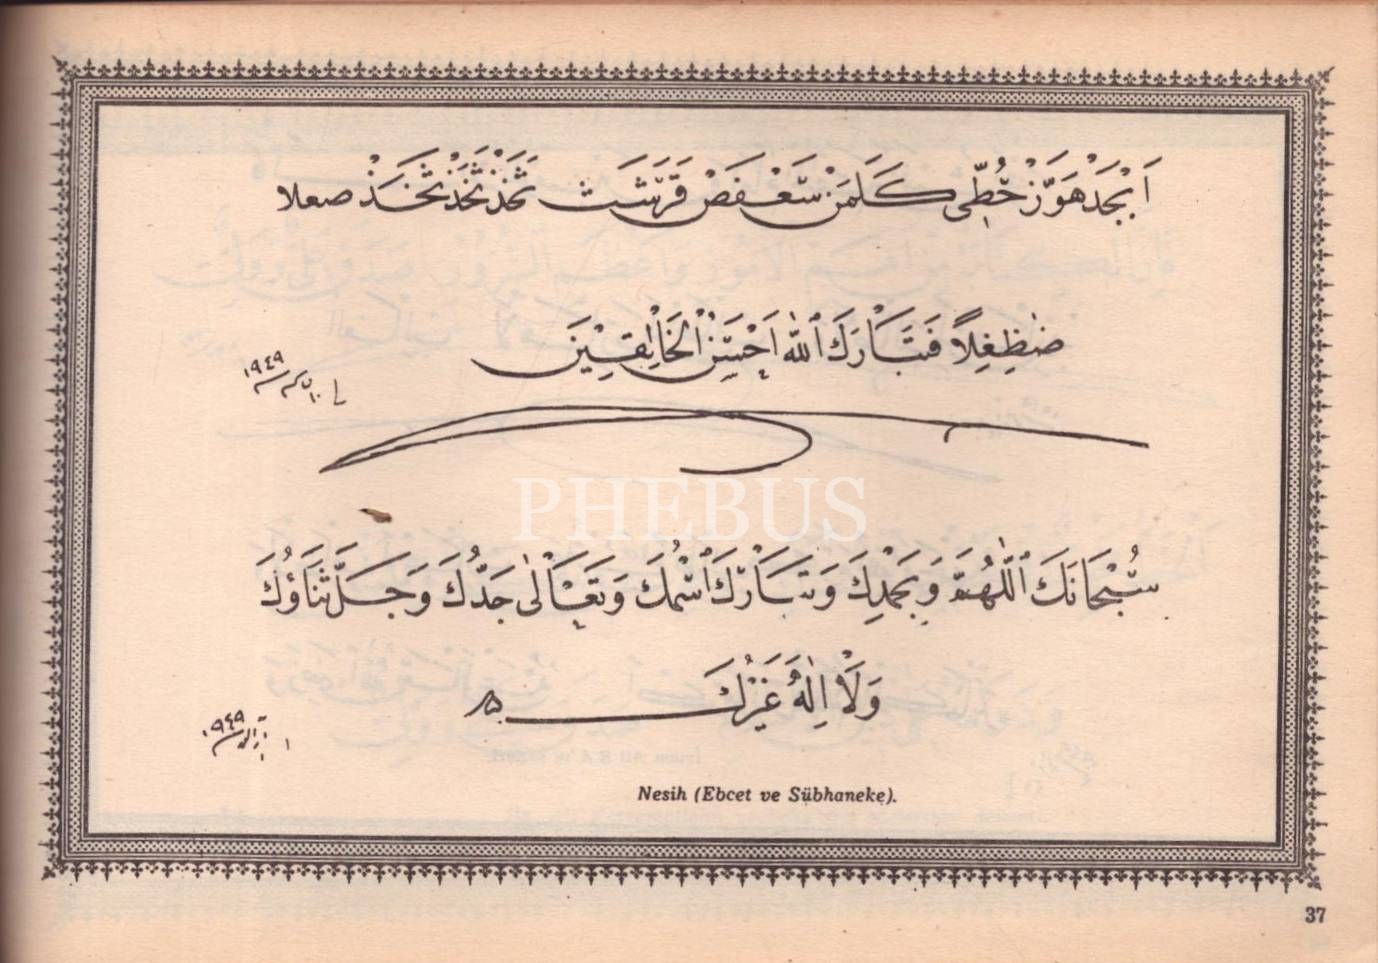 اَبْجَدْ هَوَّزْ حُطِّى كَلَمَنْ سَعْفَصْ قَرَشَتْ ثَخَذْ ثَخَذْ ثَخَذْ صعلا
ضَظِغِلاً فَتَبَارَكَ اللّٰهُ اَحْسَنُ الْخَالِقِينَ
١٩٤٩
PHEBUS
سُبْحَانَكَ اللّٰهُمَّ وَبِحَمْدِكَ وَتَبَارَكَ اسْمُكَ وَتَعَالٰى جَدُّكَ وَجَلَّ ثَنَاؤُكَ
وَلَا اِلٰهَ غَيْرُكَ
١٩٤٩
Nesih (Ebcet ve Sübhaneke).
37